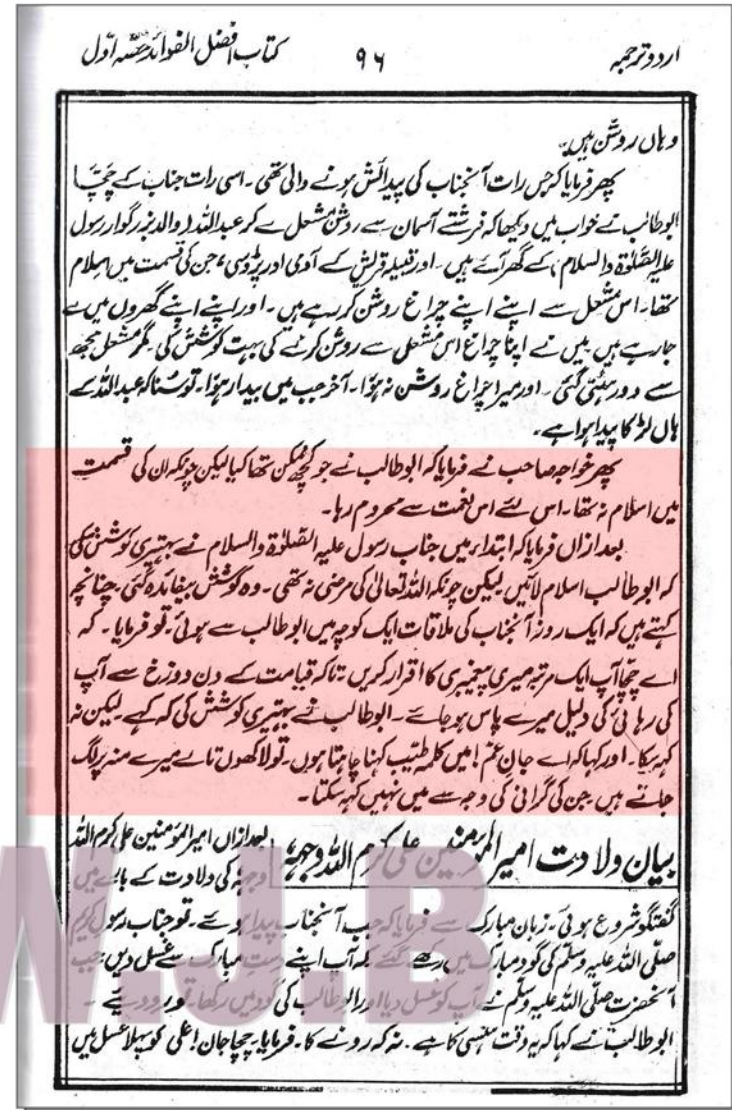 اردو ترجمہ ۹۶ کتاب افضل الفوائد حصہ اول
وہاں روشن ہیں۔
پھر فرمایا کہ جس رات آنجناب کی پیدائش ہونے والی تھی۔ اسی رات جناب کے چچا
ابوطالب نے خواب میں دیکھا کہ فرشتے آسمان سے روشن مشعل لے کر عبداللہ (والد بزرگوار رسول
علیہ الصلوٰۃ والسلام) کے گھر آئے ہیں۔ اور قبیلہ قریش کے آدمی اور پڑوسی، جن کی قسمت میں اسلام
تھا۔ اس مشعل سے اپنے اپنے چراغ روشن کر رہے ہیں۔ اور اپنے اپنے گھروں میں لے
جا رہے ہیں۔ میں نے اپنا چراغ اس مشعل سے روشن کرنے کی بہت کوشش کی۔ مگر مشعل مجھ
سے دور ہٹتی گئی۔ اور میرا چراغ روشن نہ ہوا۔ آخر جب میں بیدار ہوا۔ تو سنا کہ عبداللہ کے
ہاں لڑکا پیدا ہوا ہے۔
پھر خواجہ صاحب نے فرمایا کہ ابوطالب نے جو کچھ ممکن تھا کیا لیکن چونکہ ان کی قسمت
میں اسلام نہ تھا۔ اس لئے اس نعمت سے محروم رہا۔
بعد ازاں فرمایا کہ ابتداء میں جناب رسول علیہ الصلوٰۃ والسلام نے بہتیری کوشش کی
کہ ابوطالب اسلام لائیں لیکن چونکہ اللہ تعالیٰ کی مرضی نہ تھی۔ وہ کوشش بیفائدہ گئی۔ چنانچہ
کہتے ہیں کہ ایک روز آنجناب کی ملاقات ایک کوچہ میں ابوطالب سے ہوئی۔ تو فرمایا۔ کہ
اے چچا آپ ایک مرتبہ میری پیغمبری کا اقرار کریں۔ تاکہ قیامت کے دن دوزخ سے آپ
کی رہائی کی دلیل میرے پاس ہو جائے۔ ابوطالب نے بہتیری کوشش کی کہ کہے۔ لیکن نہ
کہہ سکا۔ اور کہا کہ اے جانِ عم! میں کلمہ طیب کہنا چاہتا ہوں۔ تو لاکھوں تالے میرے منہ پر لگ
جاتے ہیں جن کی گرانی کی وجہ سے میں نہیں کہہ سکتا۔
بیان ولادت امیر المؤمنین علی کرم اللہ وجہہ، بعد ازاں امیر المؤمنین علی کرم اللہ
وجہہٗ کی ولادت کے بارے میں
گفتگو شروع ہوئی۔ زبان مبارک سے فرمایا کہ جب آنجناب پیدا ہوئے۔ تو جناب رسول کریم
صلی اللہ علیہ وسلم کی گود مبارک میں رکھے گئے کہ آپ اپنے دست مبارک سے غسل دیں: جب
آنحضرت صلی اللہ علیہ وسلم نے آپ کو غسل دیا اور ابوطالب کی گود میں رکھا تو رو دیئے۔
ابوطالب نے کہا کہ یہ وقت ہنسی کا ہے۔ نہ کہ رونے کا۔ فرمایا۔ چچا جان! علی کو پہلا غسل میں
W.J.B